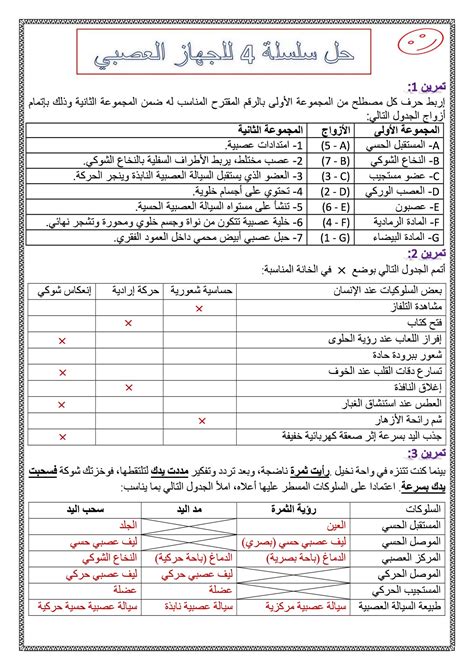 حل سلسلة 4 للجهاز العصبي
تمرين 1:
إربط حرف كل مصطلح من المجموعة الأولى بالرقم المقترح المناسب له ضمن المجموعة الثانية وذلك بإتمام
أزواج الجدول التالي:
المجموعة الأولى الأزواج المجموعة الثانية
A- المستقبل الحسي (A - 5) 1- امتدادات عصبية.
B- النخاع الشوكي (B - 7) 2- عصب مختلط يربط الأطراف السفلية بالنخاع الشوكي.
C- عضو مستجيب (C - 3) 3- العضو الذي يستقبل السيالة العصبية النابذة وينجز الحركة.
D- العصب الوركي (D - 2) 4- تحتوي على أجسام خلوية.
E- عصبون (E - 6) 5- تنشأ على مستواه السيالة العصبية الحسية.
F- المادة الرمادية (F - 4) 6- خلية عصبية تتكون من نواة وجسم خلوي ومحورة وتشجر نهائي.
G- المادة البيضاء (G - 1) 7- حبل عصبي أبيض محمي داخل العمود الفقري.
تمرين 2:
أتمم الجدول التالي بوضع × في الخانة المناسبة:
بعض السلوكيات عند الإنسان حساسية شعورية حركة إرادية إنعكاس شوكي
مشاهدة التلفاز ×
فتح كتاب ×
إفراز اللعاب عند رؤية الحلوى ×
شعور ببرودة حادة
تسارع دقات القلب عند الخوف ×
إغلاق النافذة ×
العطس عند استنشاق الغبار ×
شم رائحة الأزهار ×
جذب اليد بسرعة إثر صعقة كهربائية خفيفة ×
تمرين 3:
بينما كنت تتنزه في واحة نخيل، رأيت ثمرة ناضجة، وبعد تردد وتفكير مددت يدك لتلتقطها، فوخزتك شوكة فسحبت
يدك بسرعة. اعتمادا على السلوكات المسطر عليها أعلاه، املأ الجدول التالي بما يناسب:
السلوكات رؤية الثمرة مد اليد سحب اليد
المستقبل الحسي العين الجلد
الموصل الحسي ليف عصبي حسي (بصري) ليف عصبي حسي
المركز العصبي الدماغ (باحة بصرية) الدماغ (باحة حركية) النخاع الشوكي
الموصل الحركي ليف عصبي حركي ليف عصبي حركي
المستجيب الحركي عضلة عضلة
طبيعة السيالة العصبية سيالة عصبية مركزية سيالة عصبية نابذة سيالة عصبية حسية حركية